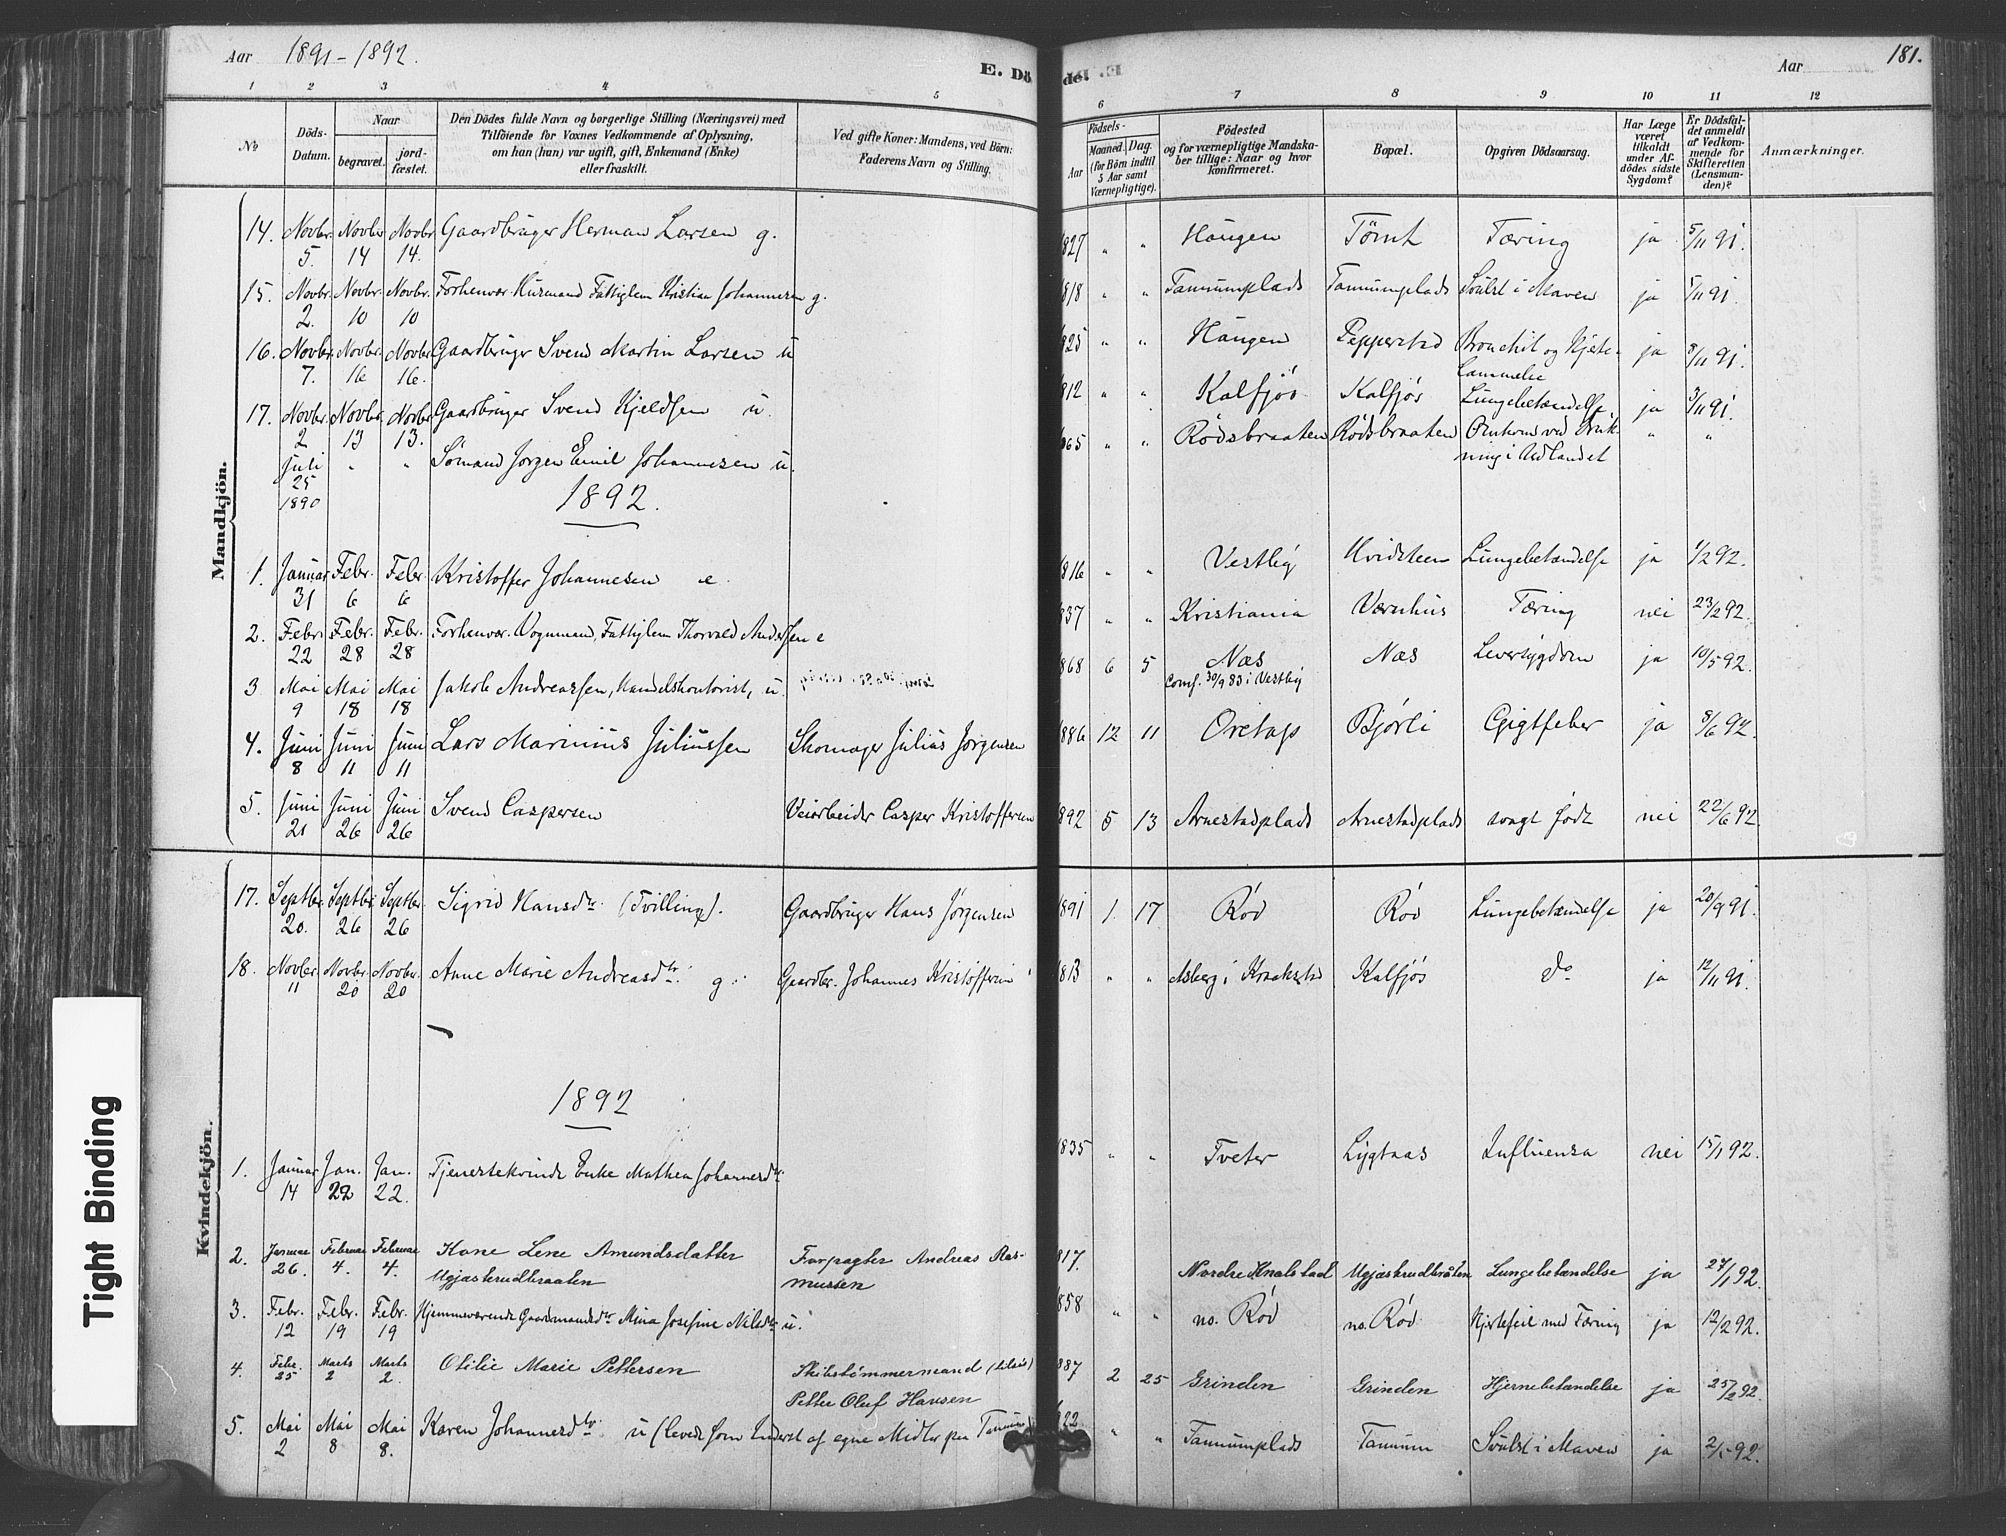 Aar 1891-1892.
E. Dö
del
Aar
181.
1 2 3 4 5 6 7 8 9 10 11 12
No
Döds-Datum.
Naar
begravet.
jord-fæstet.
Den Dödes fulde Navn og borgerlige Stilling (Næringsvei) med
Tilföiende for Voxnes Vedkommende af Oplysning,
om han (hun) var ugift, gift, Enkemand (Enke)
eller fraskilt.
Ved gifte Koner: Mandens, ved Börn:
Faderens Navn og Stilling.
Födsels-
Aar
Maaned. Dag.
(for Börn indtil
5 Aar samt
Værnepligtige).
Födested
og for værnepligtige Mandska-
ber tillige: Naar og hvor
konfirmeret.
Bopæl.
Opgiven Dödsaarsag.
Har Læge
været
tilkaldt
under Af-
dödes sidste
Sygdom?
Er Dödsfal-
det anmeldt
af Vedkom-
mende for
Skifteretten
(Lensman-
den)?
Anmærkninger.
Mandkjön.
14. Novbr. 5. Novbr 14 Novbr 14. Gaardbruger Herman Larsen g. 1827 " " Haugen Tømt Tæring ja 5/11 91.
15. Novbr. 2. Novbr. 10 Novbr. 10 Forhenvær. Husmand Fattiglem Kristian Johannesen g. 1818 " " Tannumplads Tannumplads Svulst i Maven ja 5/11 91.
16. Novbr. 7. Novbr. 16 Novbr. 16. Gaardbruger Svend Martin Larsen u 1825 " " Haugen Pepperstad Bronchit og Hjerte-
lammelse ja 8/11 91.
17. Novbr. 2 Novbr. 13 Novbr. 13. Gaardbruger Svend Kjeldsen u. 1812 " " Kolfjøs Kolfjøs Lungebetændelse ja 3/11 91.
Juli 25 1890 " " Sømand Jørgen Emil Johannesen u. 1865 " " Rødsbraaten Rødsbraaten Omkom ved Druk-
ning i Udlandet " "
1892.
1. Januar 31 Febr. 6 Febr. 6 Kristoffer Johannesen e. 1816 " " Vestby Hvidsteen Lungebetændelse ja 1/2 92.
2. Febr. 22 Febr. 28 Febr. 28 Forhenvær. Vognmand, Fattiglem Thorvald Andersen e 1837 " " Kristiania Værnhus Tæring nei 23/2 92.
3 Mai 9 Mai 18 Mai 18 Jakob Andreassen, Handelskontorist, u. 1868 6 5 Næs
Conf. 30/9 83 i Vestby Næs Leversygdom ja 10/5 92.
4. Juni 8 Juni 11 Juni 11 Lars Marinius Juliussen Skomager Julius Jørgensen 1886 12 11 Oretop Bjørli Gigtfeber ja 8/6 92.
5. Juni 21 Juni 26 Juni 26 Svend Caspersen Veiarbeider Casper Kristoffersen 1892 5 13 Arnestadplads Arnestadplads svagt født nei 22/6 92.
Kvindekjön.
17. Septbr. 20. Septbr. 26 Septbr. 26 Sigrid Hansdtr. (Tvilling). Gaardbruger Hans Jørgensen 1891 1 17 Rød Rød Lungebetændelse ja 20/9 91.
18. Novbr. 11 Novbr. 20 Novbr. 20 Anne Marie Andreasdtr. g. Gaardbr. Johannes Kristoffersen 1813 " " Asberg i Kraakstad Kolfjøs do ja 12/11 91.
1892
1. Januar 14 Jan. 22 Jan. 22. Tjenestekvinde Enke Mathea Johannesdtr. 1835 " " Tveter Lygtaas Influensa nei 15/1 92.
2. Januar 26. Februar 4. Februar 4. Kone Lene Amundsdatter
Ugjæskrudbraaten Forpagter Andreas Ras-
mussen 1817. Nordre Knalstad Ugjæskrudbråten Lungebetændelse ja 27/1 92.
3. Febr. 12 Febr. 19 Febr. 19 Hjemmeværende Gaardmandsdtr Mina Josefine Nilsdtr u. 1858 " " no. Rød no. Rød Hjertefeil med Tæring ja 12/2 92.
4. Febr. 25 Marts 2 Marts 2. Otilie Marie Pettersen Skibstømmermand
Petter Oluf Hansen 1887 2 25 Grinden Grinden Hjernebetændelse ja 25/2 92.
5. Mai 2 Mai 8 Mai 8. Karen Johannesdtr u (levede som Inderst af egne Midler paa Tannum) 1822 " " Tannumplads Tannum Svulst i Maven ja 2/5 92.
Tight Binding